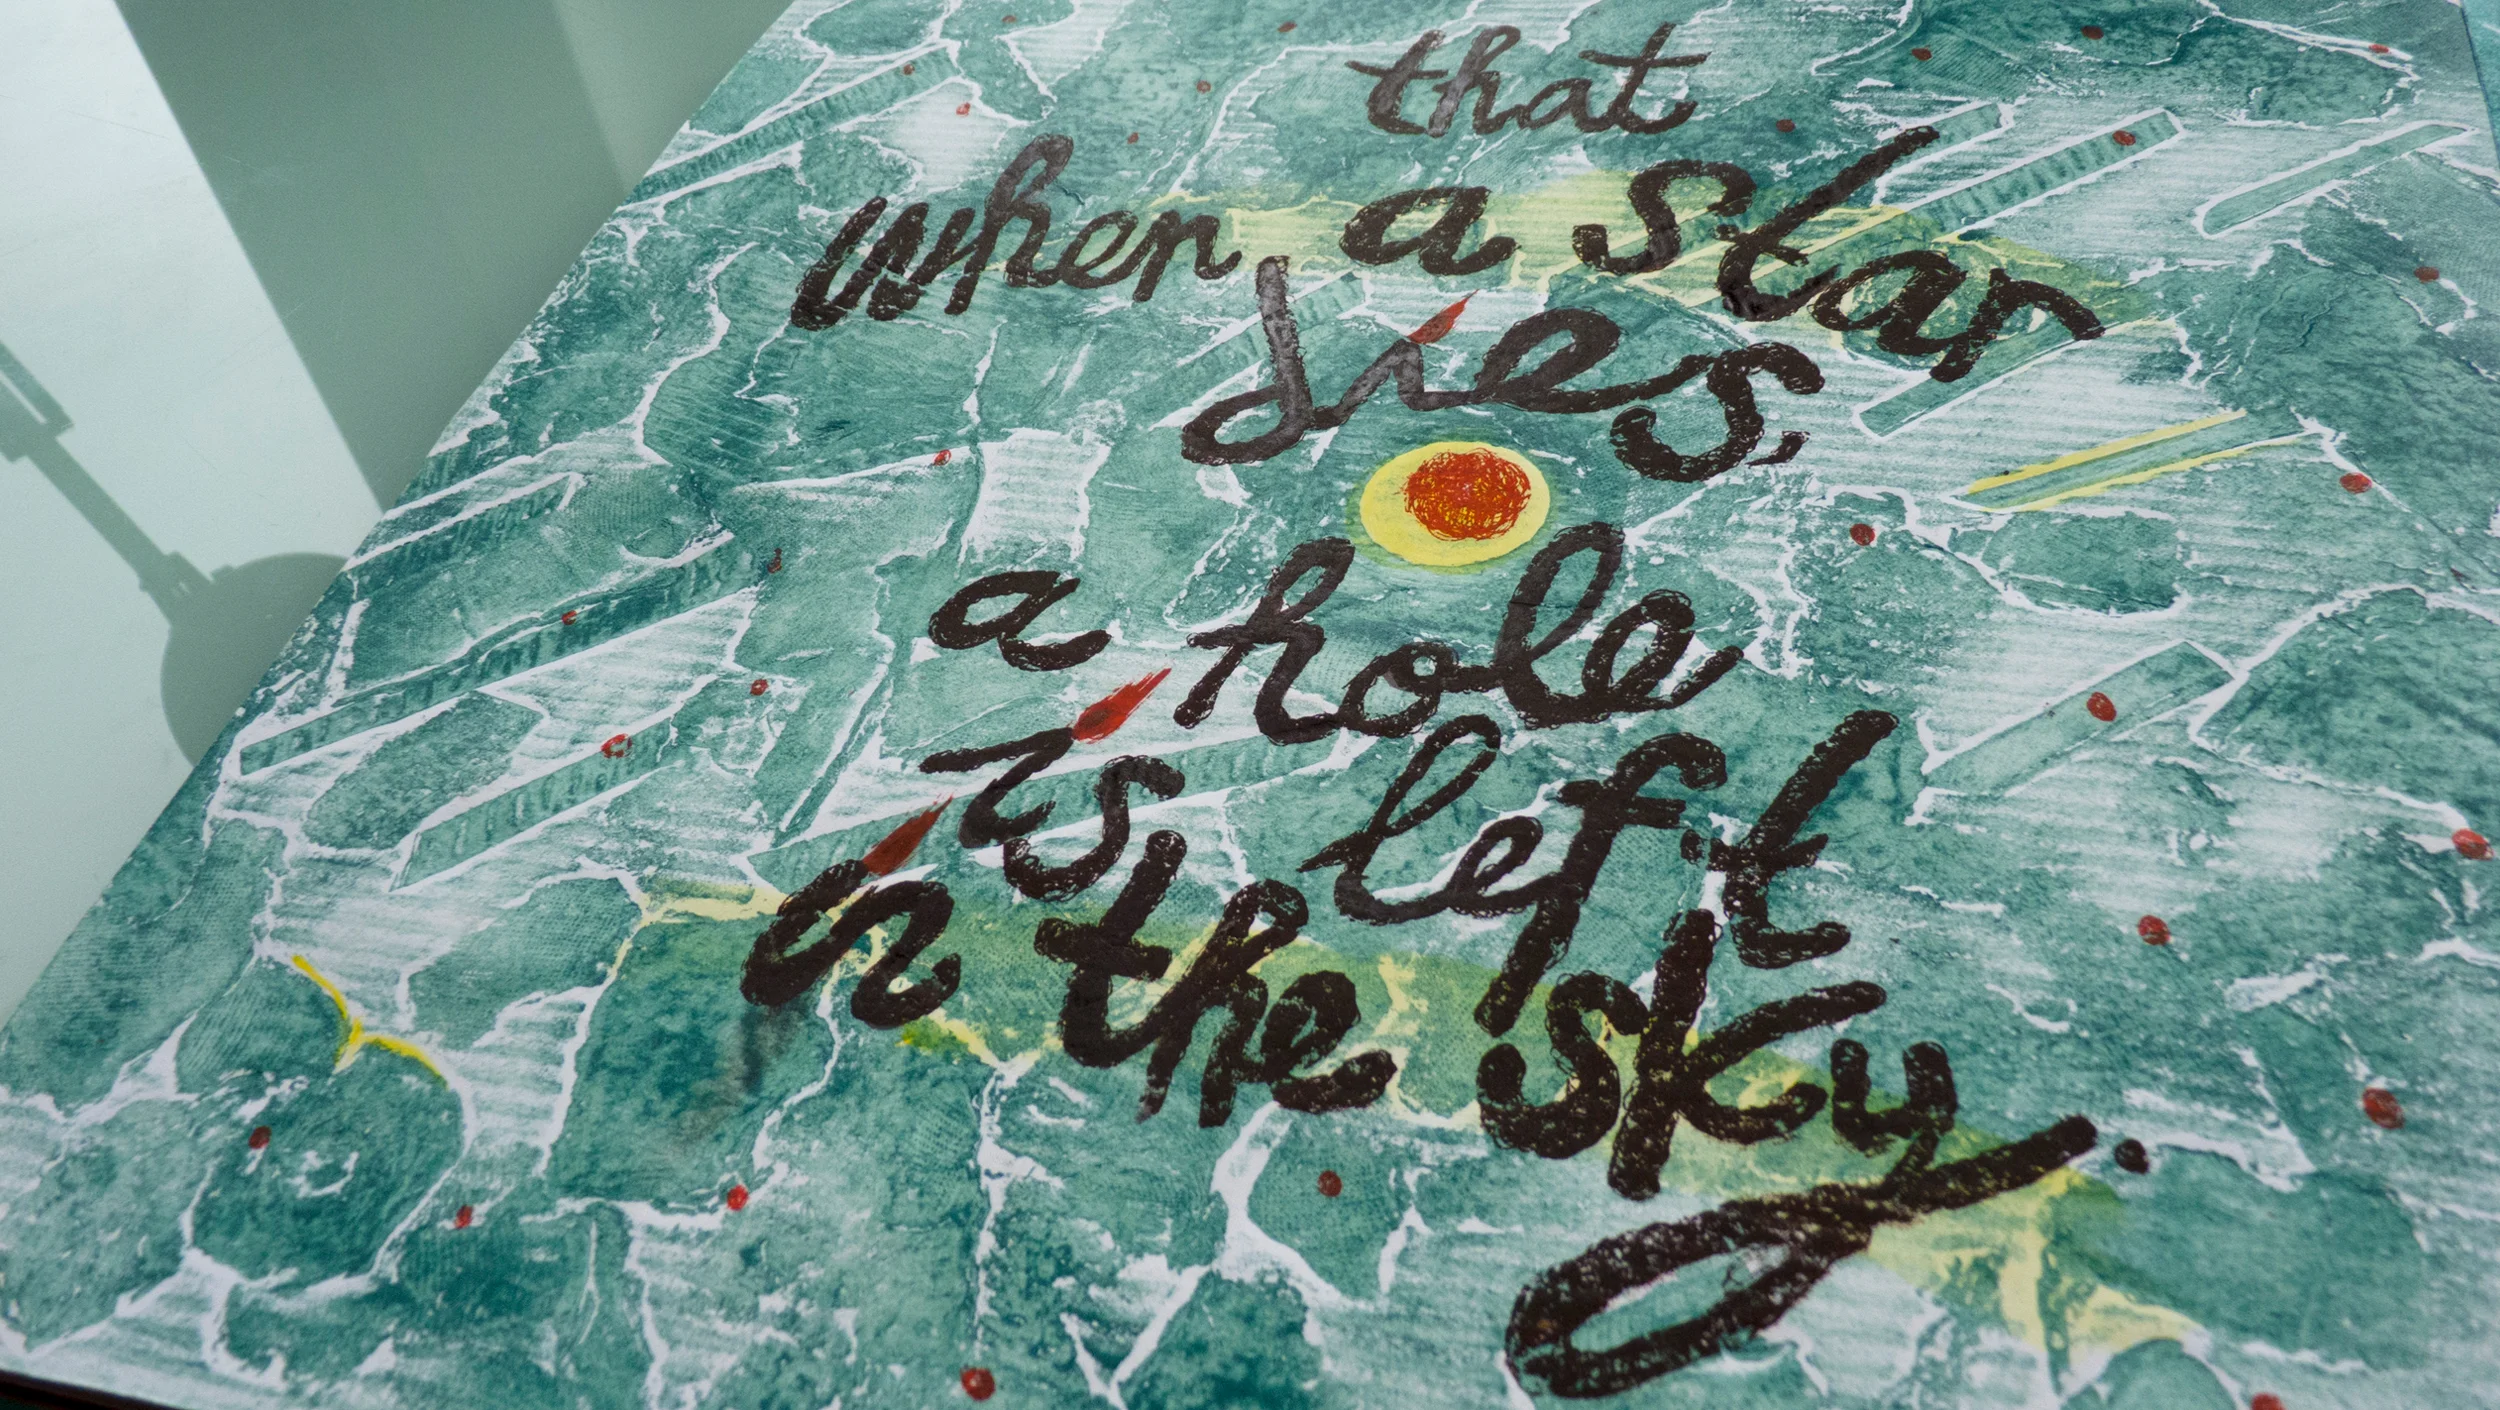 that
when a star
dies,
a hole
is left
in the sky.